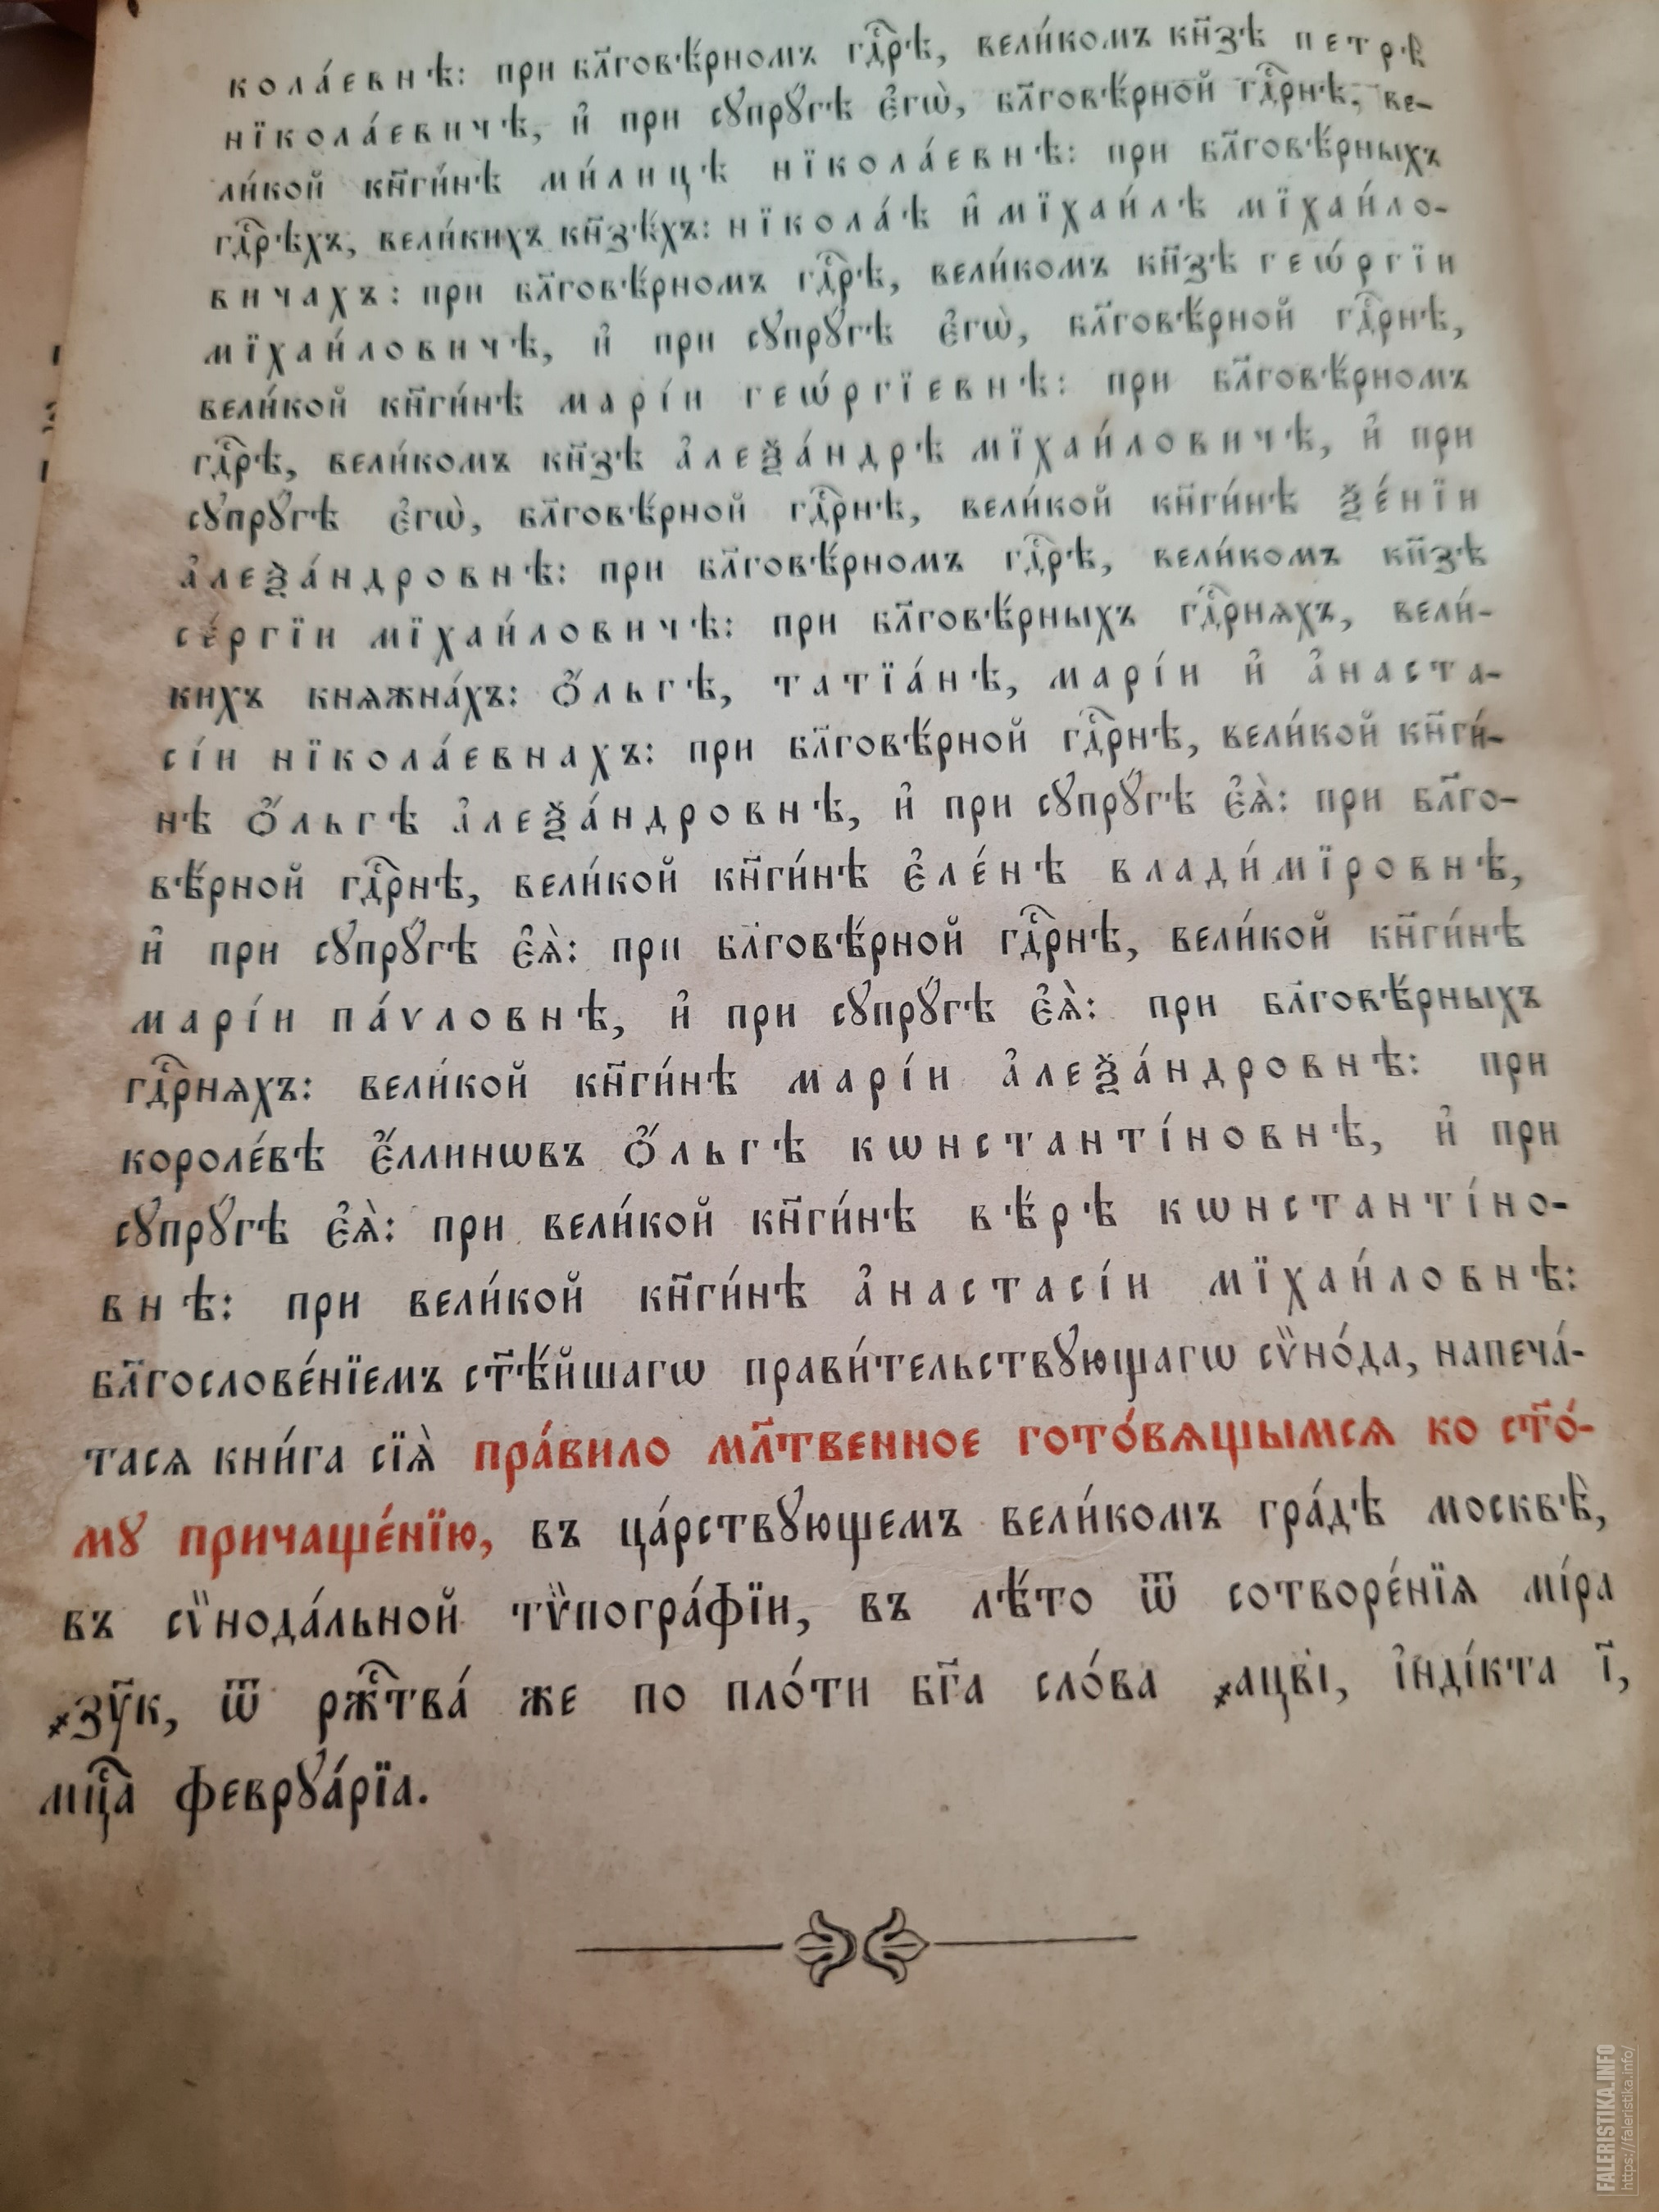 кола́евнѣ: при бл҃говѣ́рномъ гдⷭ҇рѣ, вели́комъ кн҃зѣ петрѣ̀
нїкола́евичѣ, и҆ при сꙋпрꙋ́гѣ є҆гѡ̀, бл҃говѣ́рной гдⷭ҇рнѣ, ве-
ли́кой кн҃ги́нѣ ми́лицѣ нїкола́евнѣ: при бл҃говѣ́рныхъ
гдⷭ҇рѣхъ, вели́кихъ кн҃зѣ́хъ: нїкола́ѣ и҆ мїхаи́лѣ мїхаи́ло-
вичахъ: при бл҃говѣ́рномъ гдⷭ҇рѣ, вели́комъ кн҃зѣ геѡ́ргїи
мїхаи́ловичѣ, и҆ при сꙋпрꙋ́гѣ є҆гѡ̀, бл҃говѣ́рной гдⷭ҇рнѣ,
вели́кой кн҃ги́нѣ марі́и геѡ́ргїевнѣ: при бл҃говѣ́рномъ
гдⷭ҇рѣ, вели́комъ кн҃зѣ а҆леѯа́ндрѣ мїхаи́ловичѣ, и҆ при
сꙋпрꙋ́гѣ є҆гѡ̀, бл҃говѣ́рной гдⷭ҇рнѣ, вели́кой кн҃ги́нѣ ѯе́нїи
а҆леѯа́ндровнѣ: при бл҃говѣ́рномъ гдⷭ҇рѣ, вели́комъ кн҃зѣ
се́ргїи мїхаи́ловичѣ: при бл҃говѣ́рныхъ гдⷭ҇рнѧхъ, вели́-
кихъ кнѧжна́хъ: ѻ҆́льгѣ, татїа́нѣ, марі́и и҆ а҆наста-
сі́и нїкола́евнахъ: при бл҃говѣ́рной гдⷭ҇рнѣ, вели́кой кн҃ги́-
нѣ ѻ҆́льгѣ а҆леѯа́ндровнѣ, и҆ при сꙋпрꙋ́гѣ є҆ѧ̀: при бл҃го-
вѣ́рной гдⷭ҇рнѣ, вели́кой кн҃ги́нѣ є҆ле́нѣ влади́мїровнѣ,
и҆ при сꙋпрꙋ́гѣ є҆ѧ̀: при бл҃говѣ́рной гдⷭ҇рнѣ, вели́кой кн҃ги́нѣ
марі́и па́ѵловнѣ, и҆ при сꙋпрꙋ́гѣ є҆ѧ̀: при бл҃говѣ́рныхъ
гдⷭ҇рнѧхъ: вели́кой кн҃ги́нѣ марі́и а҆леѯа́ндровнѣ: при
короле́вѣ є҆́ллинѡвъ ѻ҆́льгѣ кѡнстанті́новнѣ, и҆ при
сꙋпрꙋ́гѣ є҆ѧ̀: при вели́кой кн҃ги́нѣ вѣ́рѣ кѡнстанті́но-
внѣ: при вели́кой кн҃ги́нѣ а҆настасі́и мїхаи́ловнѣ:
бл҃гослове́нїемъ ст҃ѣ́йшагѡ прави́тельствꙋющагѡ сѷно́да, напеча́-
тасѧ кни́га сїѧ̀ пра́вило мл҃твенное гото́вѧщымсѧ ко ст҃о́-
мꙋ причаще́нїю, въ ца́рствꙋющемъ вели́комъ гра́дѣ москвѣ̀,
въ сѷнода́льной тѷпогра́фїи, въ лѣ́то ѿ сотворе́нїѧ мі́ра
҂зу҃к, ѿ ржⷭ҇тва́ же по пло́ти бг҃а сло́ва ҂ацві, і҆нді́кта і҃,
мцⷭ҇а феврꙋа́рїа.
FALERISTIKA.INFO
https://faleristika.info/